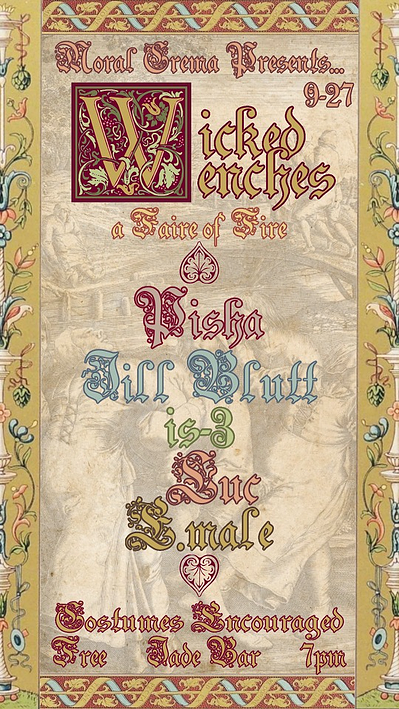 Moral Crema Presents...
9-27
Wicked
Wenches
a Faire of Fire
Pisha
Jill Blutt
is-3
Luc
E.male
Costumes Encouraged
Free Jade Bar 7pm